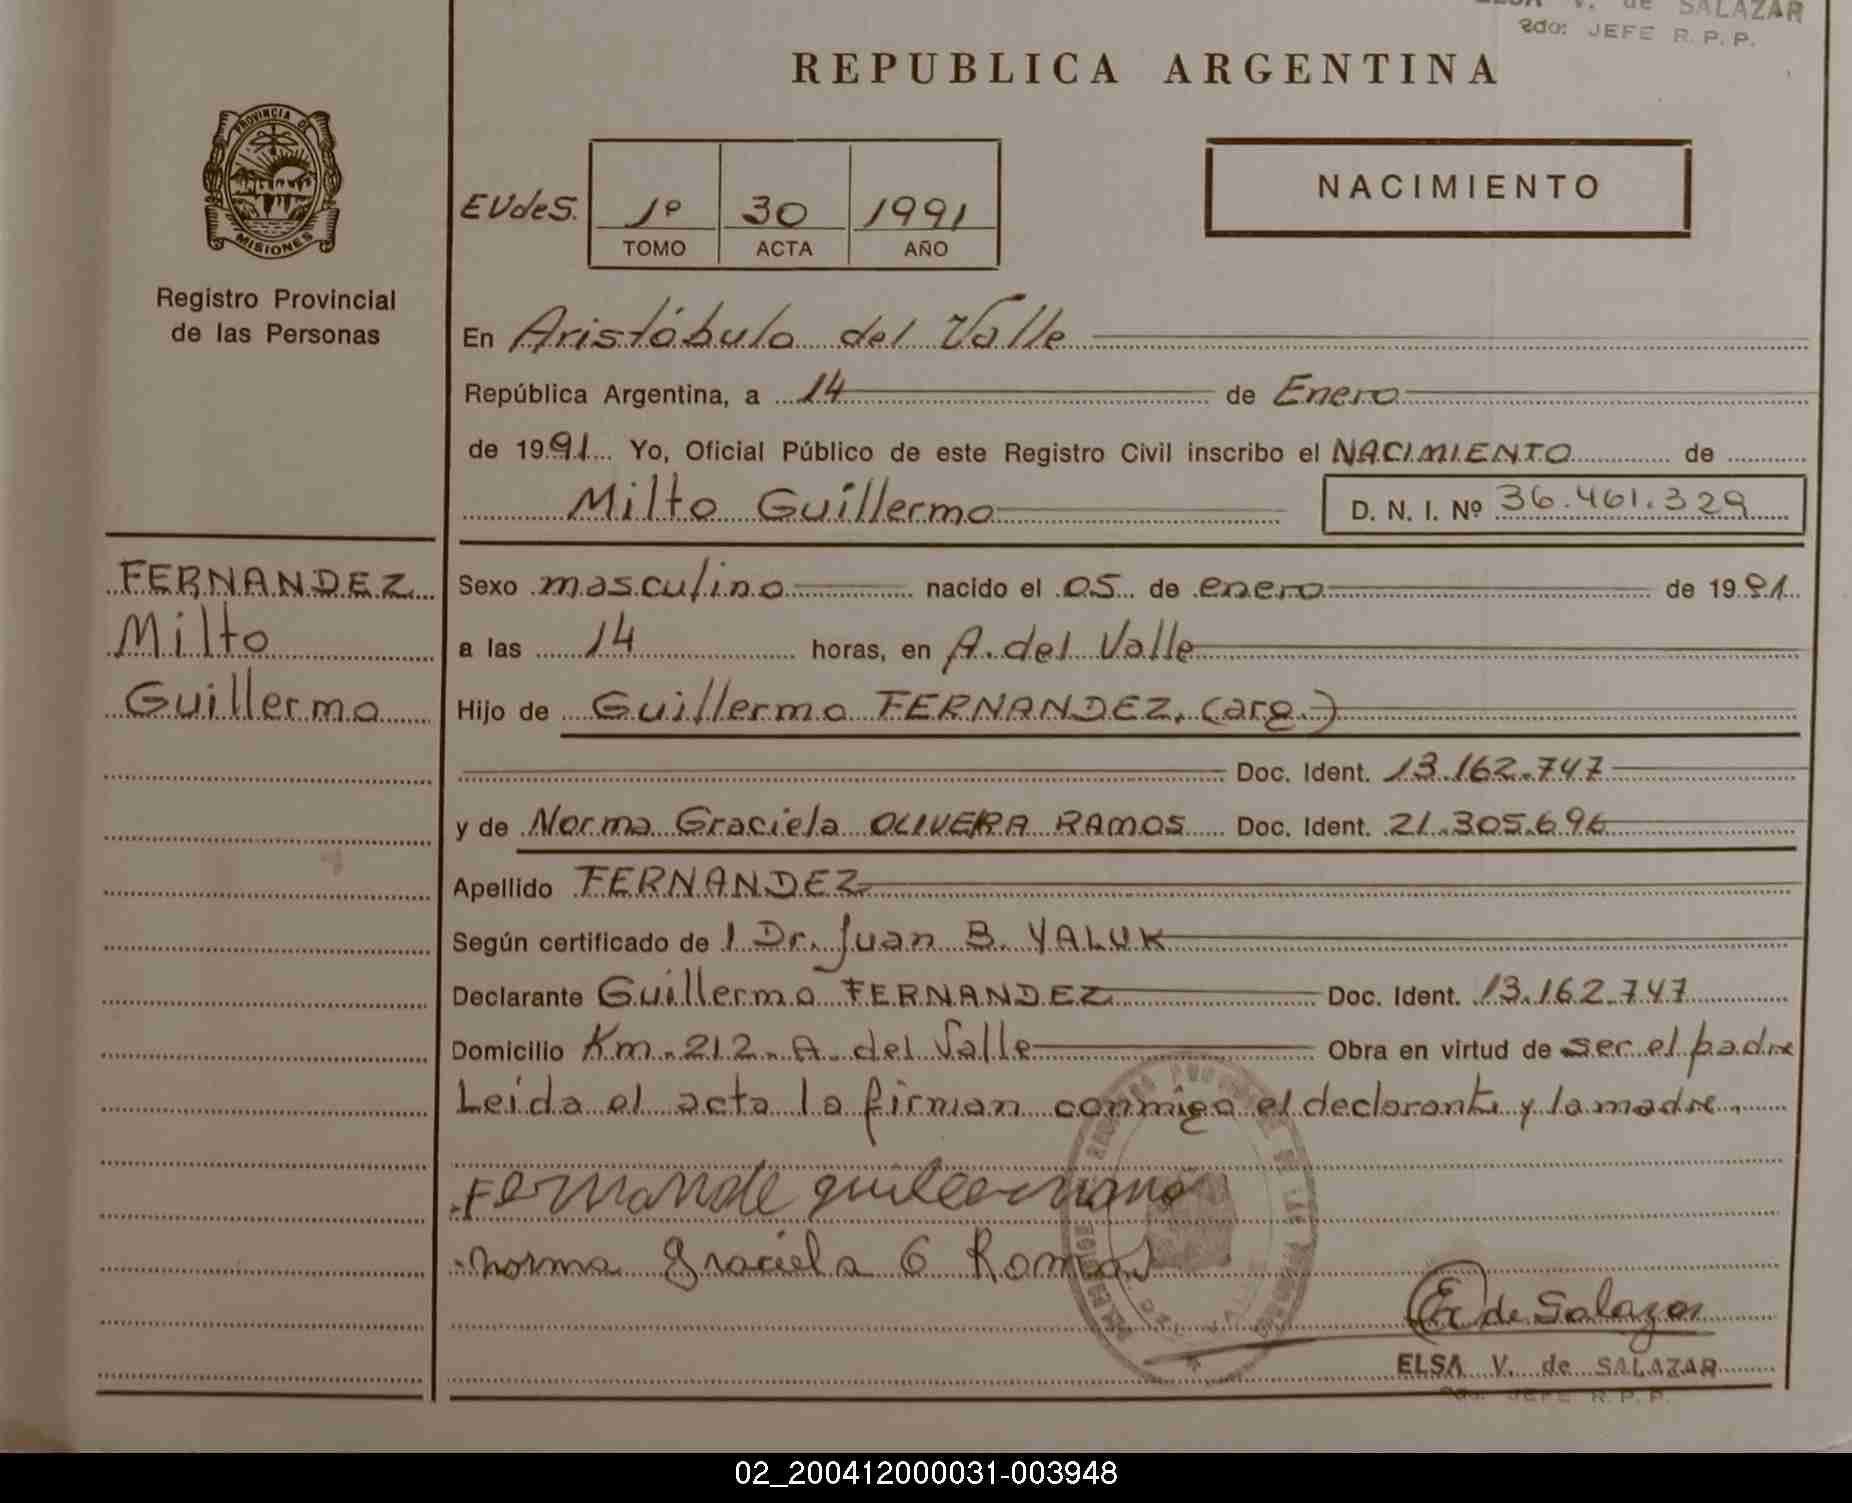 ELSA V. de SALAZAR
2do: JEFE R. P. P.
REPUBLICA ARGENTINA
PROVINCIA DE
MISIONES
Registro Provincial
de las Personas
EVdeS.
1º 30 1991
TOMO ACTA AÑO
NACIMIENTO
En Aristóbulo del Valle
República Argentina, a 14 de Enero
de 1991 Yo, Oficial Público de este Registro Civil inscribo el NACIMIENTO de
Milto Guillermo D. N. I. Nº 36.461.329
FERNANDEZ
Milto
Guillermo
Sexo masculino nacido el 05 de enero de 1991
a las 14 horas, en A. del Valle
Hijo de Guillermo FERNANDEZ, (arg.)
Doc. Ident. 13.162.747
y de Norma Graciela OLIVERA RAMOS Doc. Ident. 21.305.696
Apellido FERNANDEZ
Según certificado de 1 Dr. Juan B. YALUK
Declarante Guillermo FERNANDEZ Doc. Ident. 13.162.747
Domicilio Km. 212. A. del Valle Obra en virtud de ser el padre
Leida el acta la firman conmigo el declarante y la madre.
Norma Graciela O Ramos
E de Salazar
ELSA V. de SALAZAR
2do. JEFE R. P. P.
02_200412000031-003948